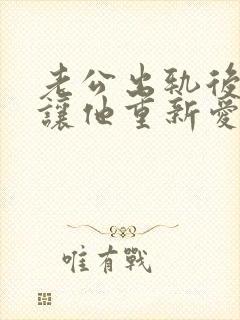 老公出軌後
讓他重新愛
唯有戰